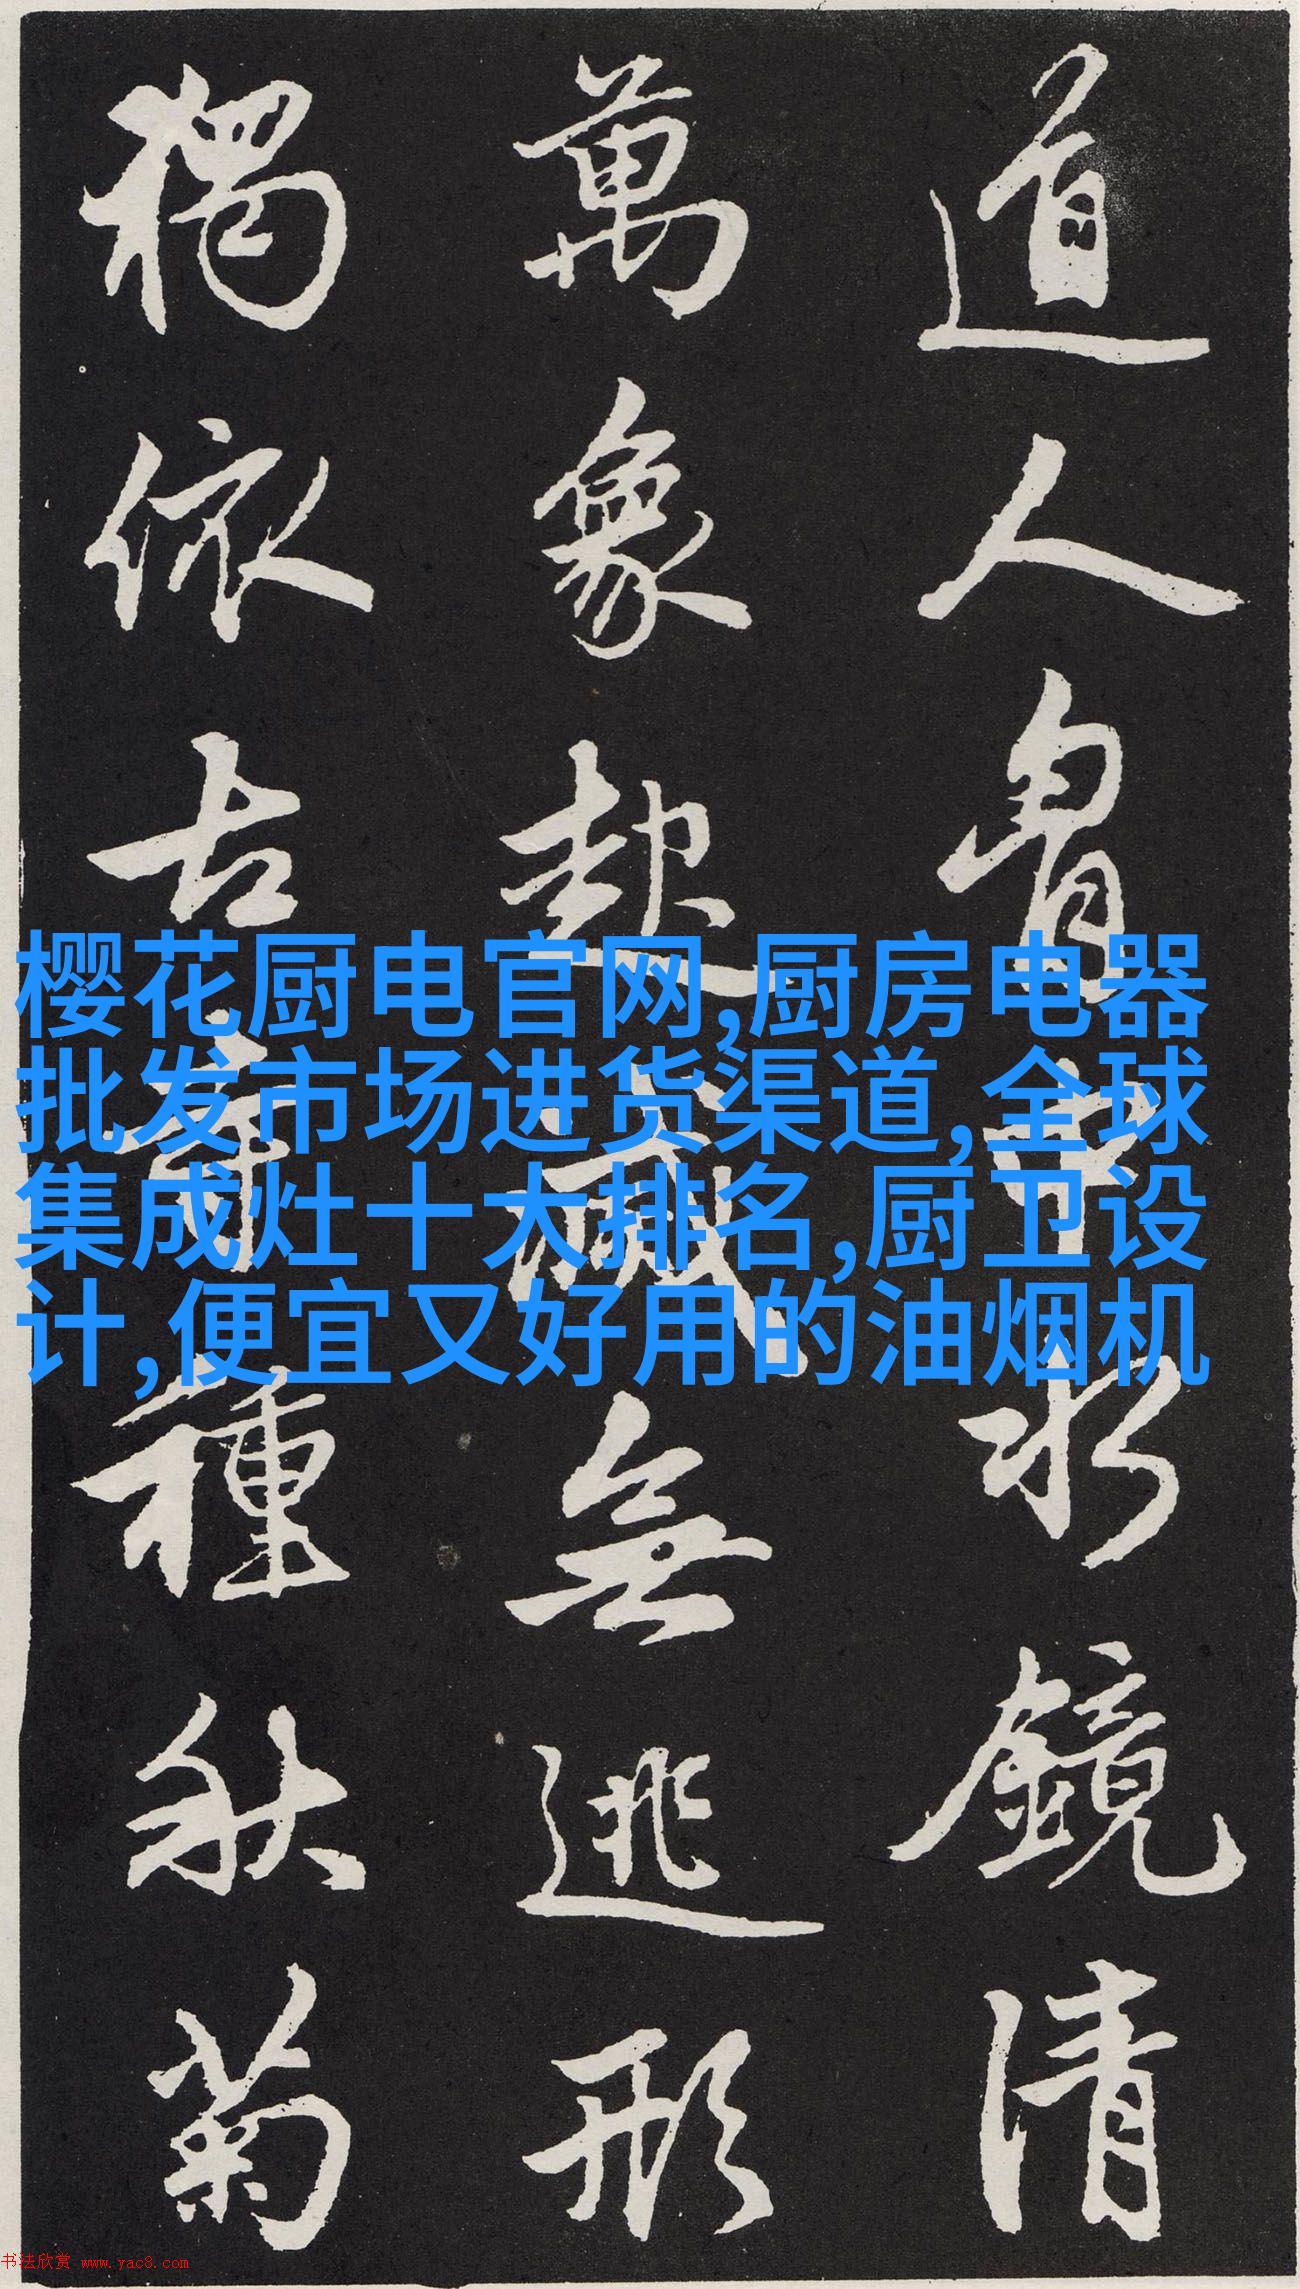 道人胷中水鏡清
萬象起滅無逃形
獨依古寺種秋菊
樱花厨电官网,厨房电器
批发市场进货渠道,全球
集成灶十大排名,厨卫设
计,便宜又好用的油烟机
书法欣赏 www.yac8.com